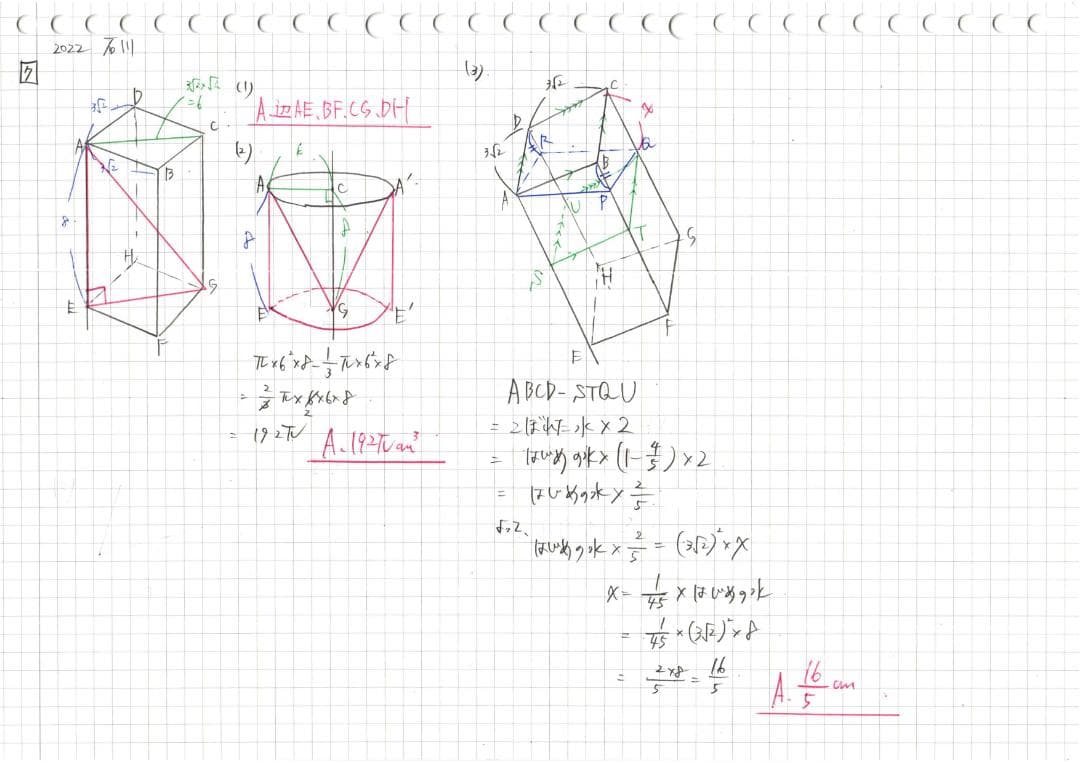 2022 石川
7
(1)
A.辺AE.BF.CG.DH
3√2
3√2×√2
=6
3√2
8
A
B
C
D
E
F
G
H
(2)
6
8
8
A
C
A'
E
G
E'
π×6²×8-1/3π×6²×8
= 2/3π×6×6×8
2
= 192π
A.192πcm³
(3)
3√2
3√2
x
A
B
C
D
P
Q
R
S
T
U
E
F
G
H
ABCD-STQU
= こぼれた水×2
= はじめの水×(1-4/5)×2
= はじめの水×2/5
よって、
はじめの水×2/5=(3√2)²×x
x=1/45×はじめの水
=1/45×(3√2)²×8
=2×8/5=16/5
A. 16/5 cm